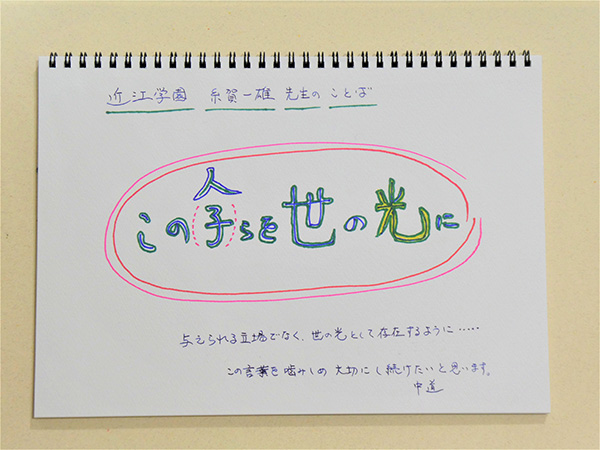 近江学園 糸賀一雄 先生の ことば
人
この子らを世の光に
与えられる立場でなく、世の光として存在するように・・・・・
この言葉を噛みしめ 大切にし続けたいと思います。
中道